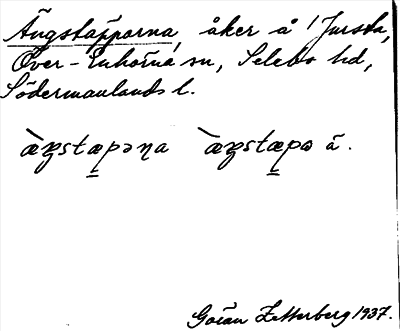 Ängstapporna, åker å Jursta,
Över-Enhörna sn, Selebo hd,
Södermanlands l.
`æŋstæpəɳa `æŋstæpɷ ä.
Göran Zetterberg 1937.